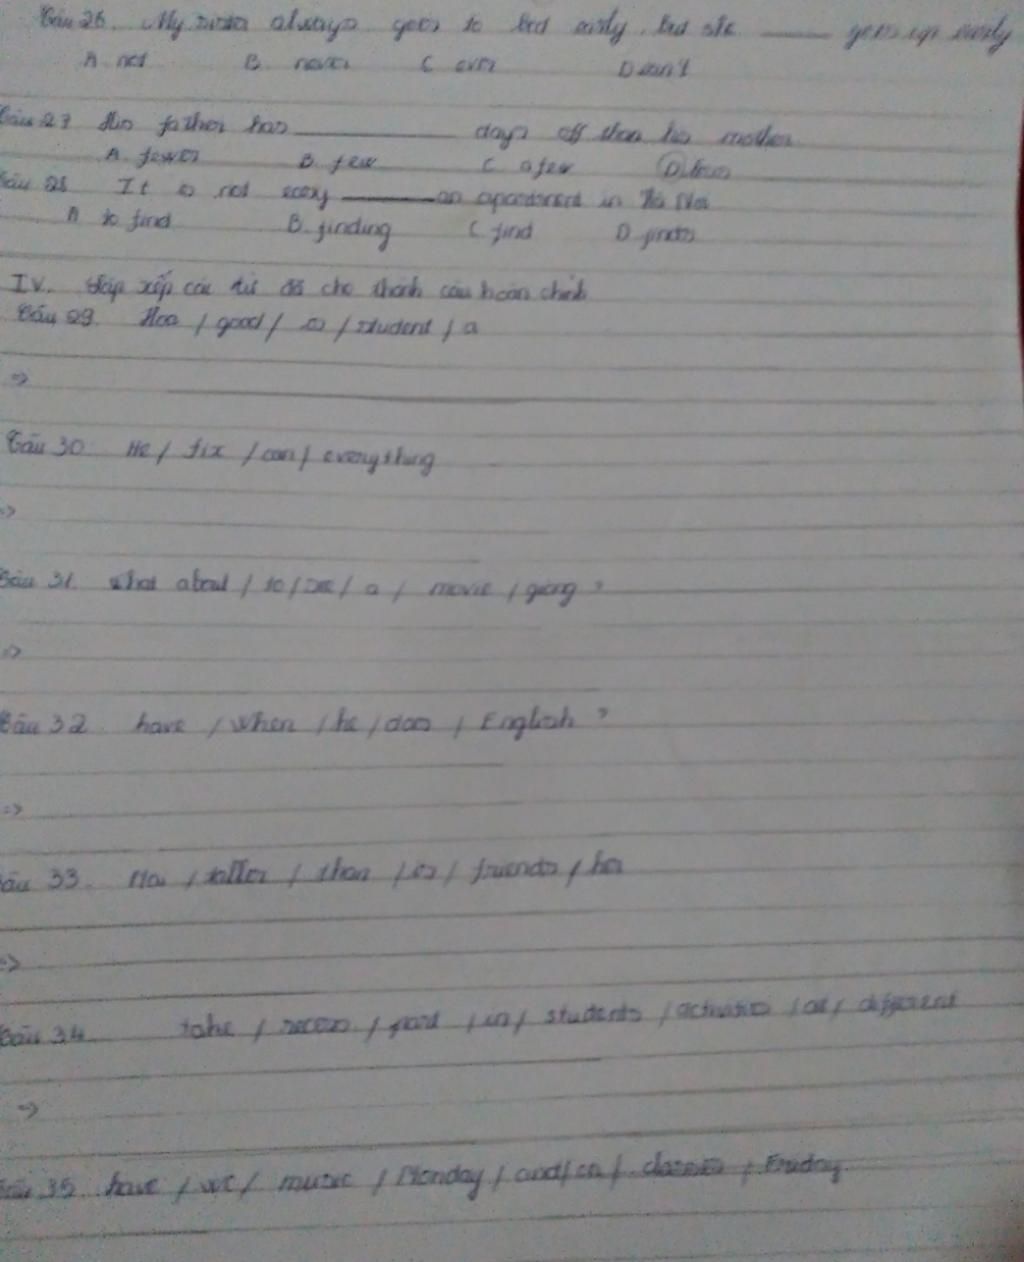 Câu 26. My sister always goes to bed early, but she ______ gets up early
A. not B. never C. ever D. can't
Câu 27 His father has ______ days off than his mother
A. fewer B. few C. a few D.
Câu 28 It is not easy ______ an apartment in Hà Nội
A. to find B. finding C. find D. finds
IV. Sắp xếp các từ đã cho thành câu hoàn chỉnh
Câu 29. Hoa / good / is / student / a
=>
Câu 30 He / fix / can / everything
=>
Câu 31. What about / to / see / a / movie / going ?
=>
Câu 32. have / When / he / does / English ?
=>
Câu 33. Mai / taller / than / is / friends / her
=>
Câu 34 take / recess / part / in / students / activities / at / different
=>
Câu 35 have / we / music / Monday / and / on / classes / Friday